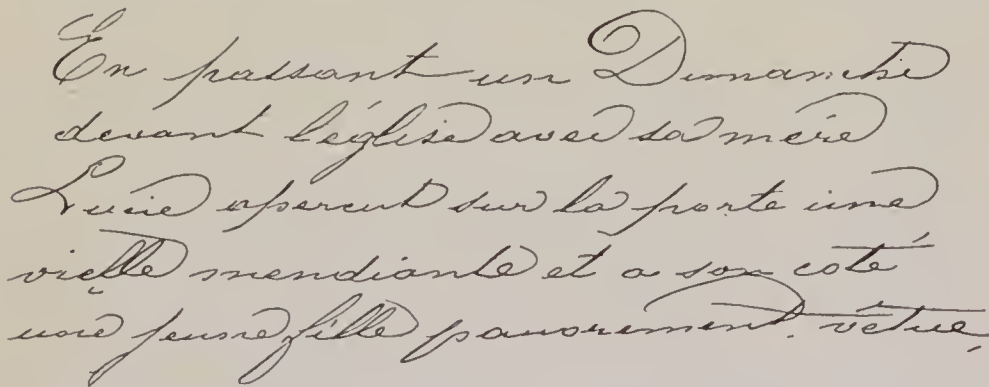 En passant un Dimanche
devant l'église avec sa mère
Lucie apercut sur la porte une
vielle mendiante et a son coté
une jeune fille pauvrement vétue,